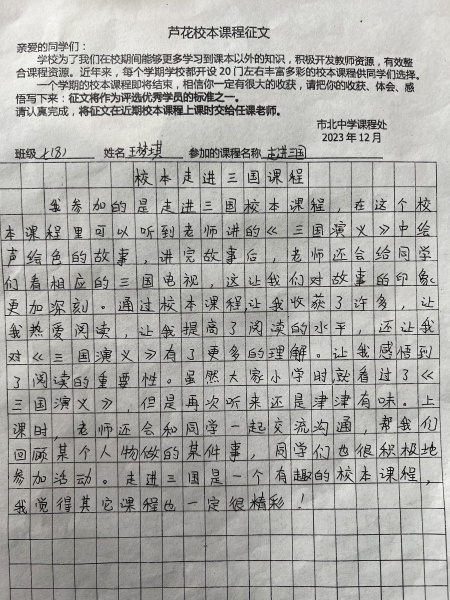 芦花校本课程征文
亲爱的同学们：
学校为了我们在校期间能够更多学习到课本以外的知识，积极开发教师资源，有效整
合课程资源。近年来，每个学期学校都开设 20 门左右丰富多彩的校本课程供同学们选择。
一个学期的校本课程即将结束，相信你一定有很大的收获，请把你的收获、体会、感
悟写下来：征文将作为评选优秀学员的标准之一。
请认真完成，将征文在近期校本课程上课时交给任课老师。
市北中学课程处
2023 年 12 月
班级 七(8) 姓名 王梦琪 参加的课程名称 走进三国
校本走进三国课程
我参加的是走进三国校本课程，在这个校
本课程里可以听到老师讲的《三国演义》中绘
声绘色的故事，讲完故事后，老师还会给同学
们看相应的三国电视，这让我们对故事的印象
更加深刻。通过校本课程，让我收获了许多，让
我热爱阅读，让我提高了阅读的水平，还让我
对《三国演义》有了更多的理解。让我感悟到
了阅读的重要性。虽然大家小学时就看过了《
三国演义》，但是再次听来还是津津有味。上
课时，老师还会和同学一起交流沟通，帮我们
回顾某个人物做的某件事，同学们也很积极地
参加活动。走进三国是一个有趣的校本课程，
我觉得其它课程也一定很精彩！